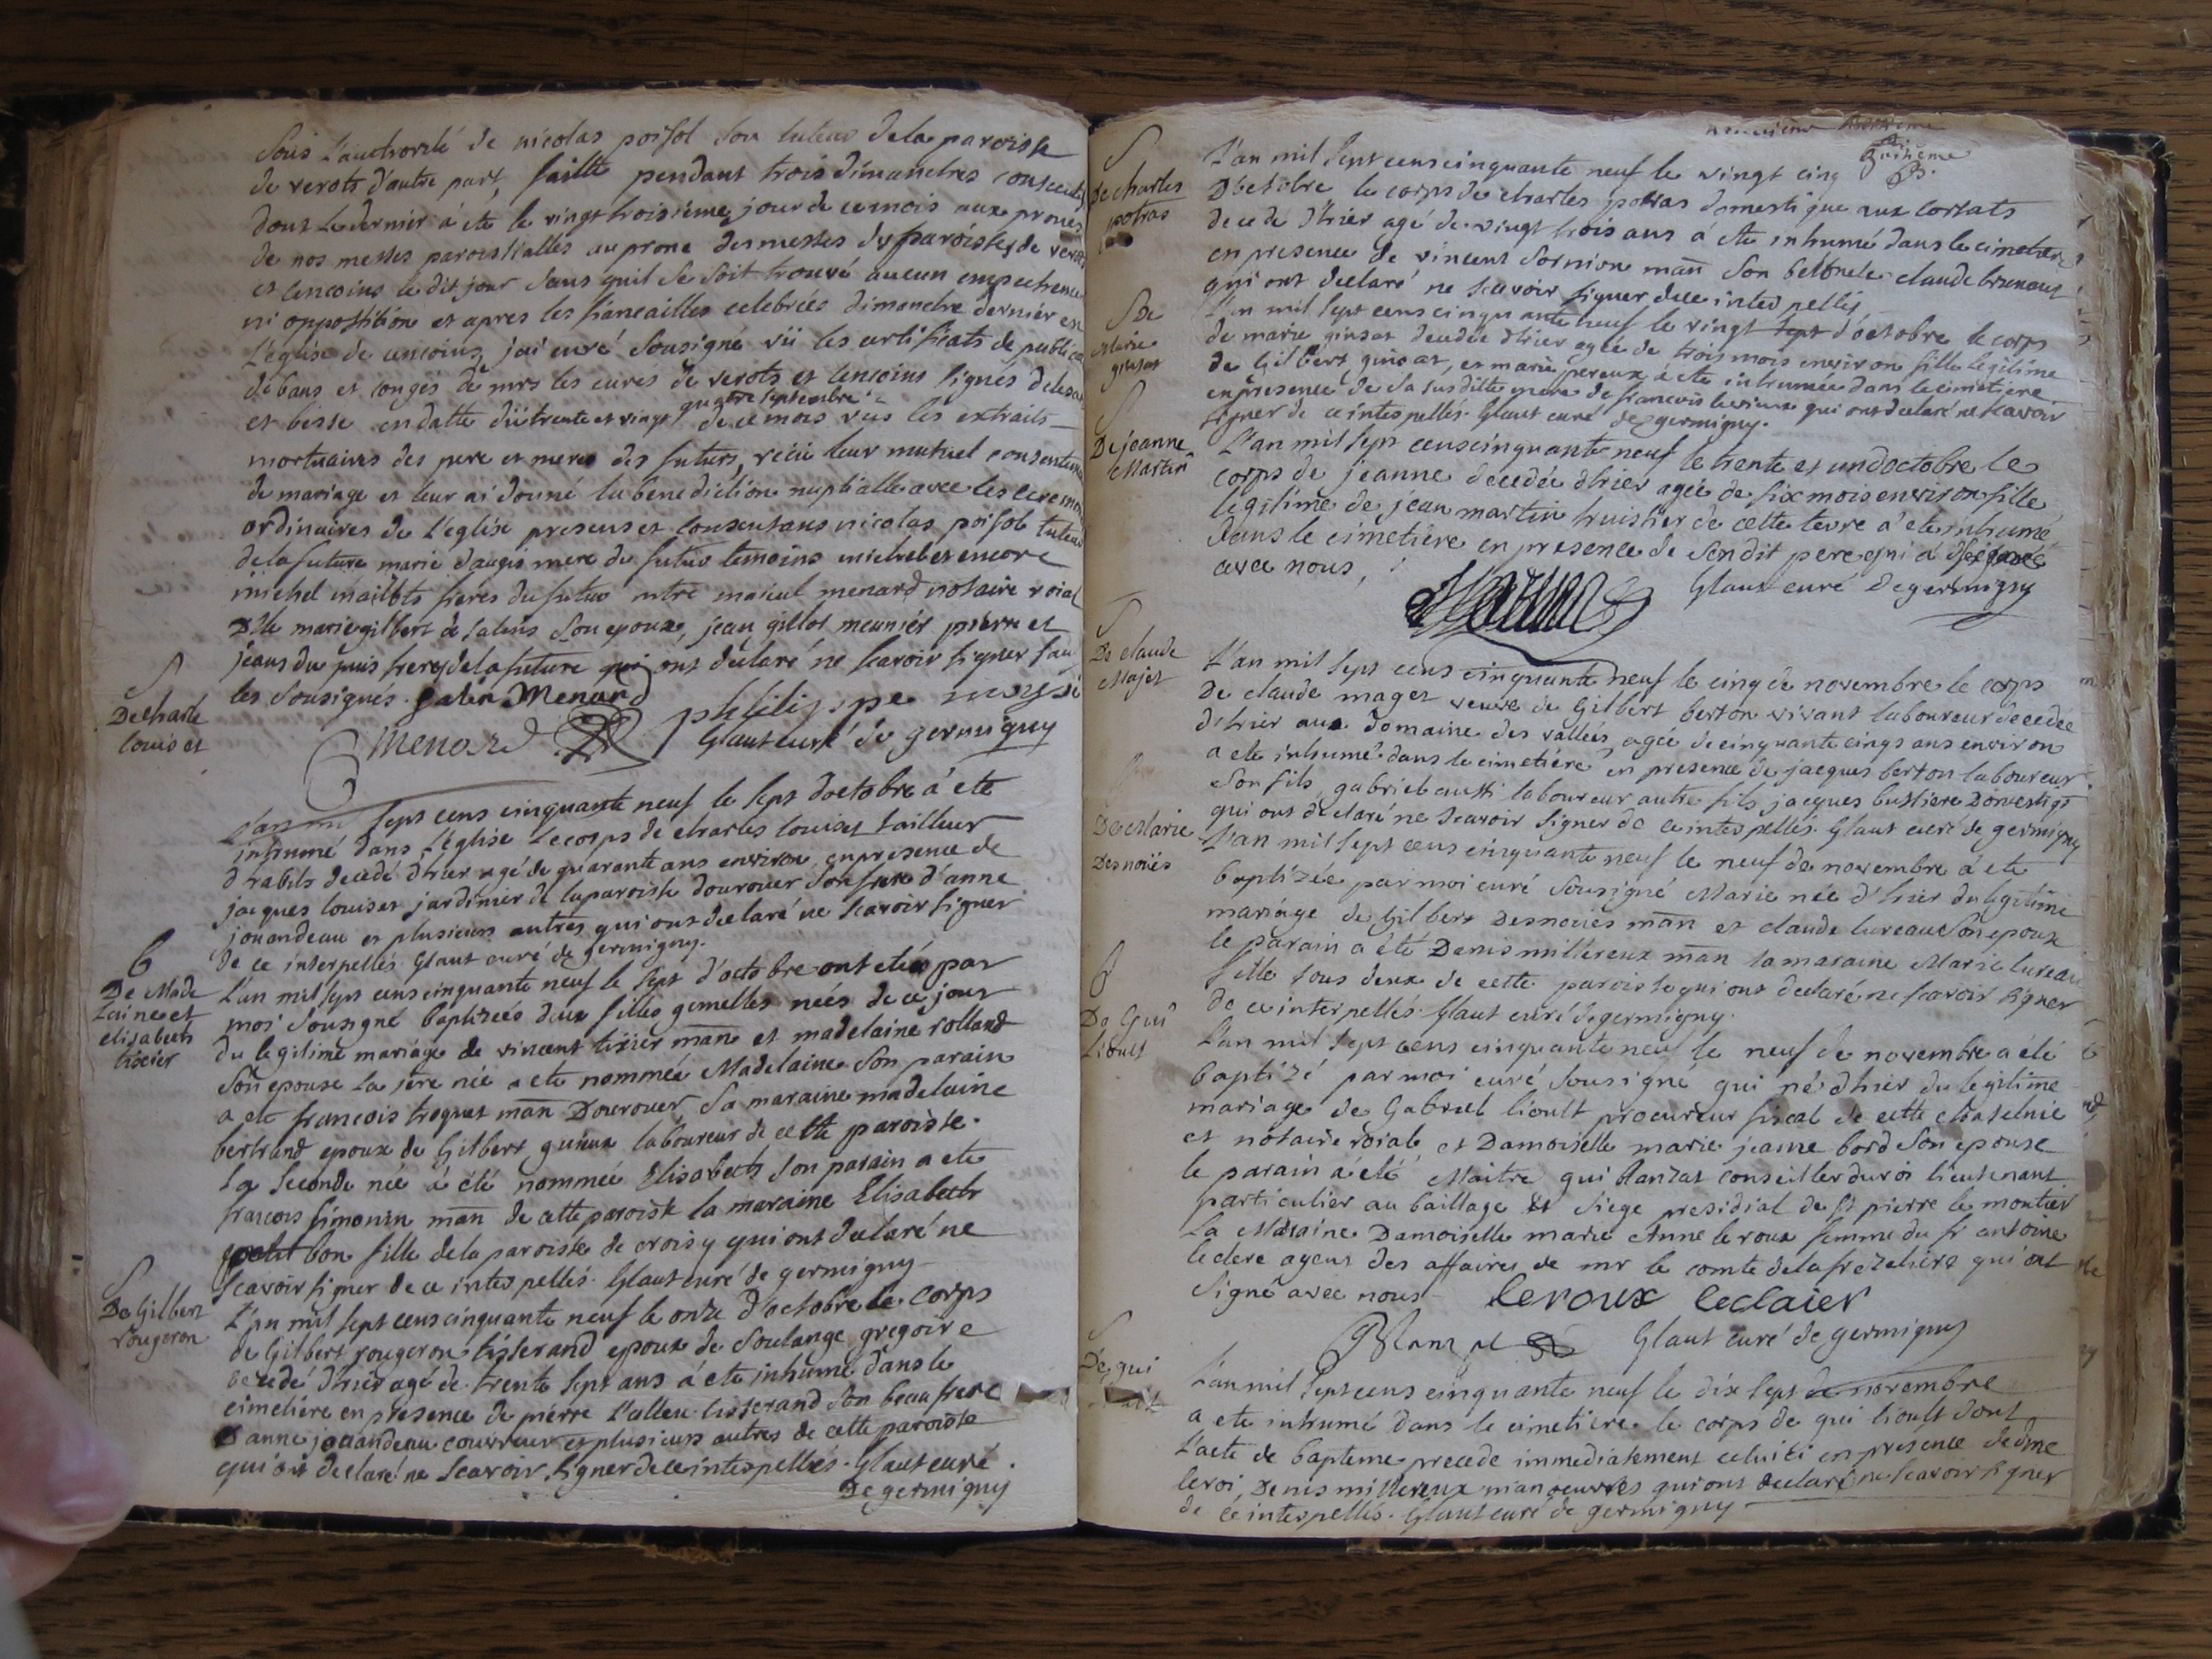 Sous l'authorité de nicolas poisol son tuteur de la paroisse
de verots d'autre part, faitte pendant trois dimanches consecutifs
dont le dernier à été le vingt troisième jour de ce mois aux prones
de nos messes paroissialles au prone des messes des paroisses de verots
et cencoins le dit jour sans quil se soit trouvé aucun empechement
ni oppossition et apres les fiancailles celebrées dimanche dernier en
l'église de cencoins, jai curé sousigné vü les certificats de publica
de bans et congés de mrs les cures de verots et cencoins signés
et bisse en datte dü trente et vingt quatre septembre de ce mois vus les extraits
mortuaires des pere et mere des futurs, récü leur mutuel consentement
de mariage et leur ai donné la benediction nuptialle avec les ceremon
ordinaires de l'église presens et consentans nicolas poisol tuteur
de la future marie daugis mere du futur temoins michel et encore
michel mailots freres du futur mtre menard notaire roial
Dlle marie gilbert de salins son epouse, jean gillot meunier pierre et
jeans du puis freres de la future qui ont déclaré ne scavoir signer sauf
les sousignés. galin Menard
philippe
Menard Glaut curé de germigny
De charle
louiset
L'an mil sept cens cinquante neuf le sept doctobre à été
inhumé dans l'église le corps de charles louiset tailleur
d'habits decedé d'hier agé de quarante ans environ, en presence de
jacques louiset jardinier de la paroisse dourouer son frere d'anne
jouandeau et plusieurs autres qui ont declaré ne scavoir signer
de ce interpellés. Glaut curé de germigny.
B
De Made
laine et
elisabeth
tixier
L'an mil sept cens cinquante neuf le sept d'octobre ont etés par
moi sousigné baptizées deux filles gemelles nées de ce jour
du legitime mariage de vincent tixier man et madelaine rolland
son epouse la 1ere née a ete nommée Madelaine son parain
a ete francois troquet man Dourouer, sa maraine madelaine
bertrand epoux de Gilbert guieux laboureur de cette paroisse.
La seconde née à été nommée Elisabeth son parain a ete
francois simonin man de cette paroisse la maraine Elisabeth
petit bon fille de la paroisse de croisy qui ont declaré ne
scavoir signer de ce interpellés. Glaut curé de germigny
S
De Gilbert
rougeron
L'an mil sept cens cinquante neuf le onze d'octobre le corps
de Gilbert rougeron tisserand epoux de soulange gregoire
decedé d'hier agé de trente sept ans à ete inhumé dans le
cimetiere en presence de pierre tisserand son beau frere
D'anne jouandeau couvreur et plusieurs autres de cette paroisse
qui ont declaré ne scavoir signer de ce interpellés. Glaut curé
De germigny
S
De charles
potras
L'an mil sept cens cinquante neuf le vingt cinq
D'octobre le corps de charles potras domestique aux
decede d'hier agé de vingt trois ans à ete inhumé dans le cimetiere
en presence de vincent sornion man son claude bruneau
qui ont declaré ne scavoir signer dece interpellés
S De
Marie
L'an mil sept cens cinquante neuf le vingt sept d'octobre le corps
de marie decedée d'hier agée de trois mois environ fille legitime
de Gilbert, et marie pereux à ete inhumée dans le cimetiere
en presence de sa susditte mere de francois qui ont declaré ne scavoir
signer de ce interpellés. Glaut curé de germigny.
S
De jeanne
Martin
L'an mil sept cens cinquante neuf le trente et un doctobre le
corps de jeanne decedée d'hier agée de six mois environ fille
legitime de jean martin huissier de cette terre à ete inhumé
dans le cimetiere en presence de son dit pere qui à
avec nous,
Glaut curé De germigny
S
De claude
Majet
L'an mil sept cens cinquante neuf le cinq de novembre le corps
De claude maget veuve de Gilbert berton vivant laboureur decedée
d'hier aux domaine des vallées agée de cinquante cinqs ans environ
a ete inhumé dans le cimetiére en presence de jacques berton laboureur
son fils, gabriel aussi laboureur autre fils jacques bussiere Domestiqs
qui ont declaré ne scavoir signer de ce interpellés. Glaut curé de germigny
De Marie
Desnoües
L'an mil sept cens cinquante neuf le neuf de novembre à ete
baptizée par moi curé sousigné Marie née d'hier du legitime
mariage de Gilbert Desnoües man et claude lureau son epoux
le parain a été Denis millereux man la maraine Marie lureau
fille tous deux de cette paroisse qui ont declaré ne scavoir signer
de ce interpellés. Glaut curé de germigny.
B
De Gui
Lioult
L'an mil sept cens cinquante neuf le neuf de novembre a été
baptizé par moi curé sousigné gui né d'hier du legitime
mariage de Gabriel lioult procureur fiscal de cette chatelnie
et notaire roiale et Damoiselle marie jeanne bord son epouse
le parain a été Maitre gui blanzat conseiller du roi lieutenant
particulier au baillage et siege presidial de St pierre le moutier
La Maraine Damoiselle marie Anne le roux femme du sr antoine
leclere agent des affaires de mr le comte de la frezeliere qui ont
signé avec nous leroux leclaier
Blanzat Glaut curé de germigny
S
De gui
L'an mil sept cens cinquante neuf le dix sept de novembre
a ete inhumé dans le cimetiere le corps de gui lioult dont
l'acte de bapteme precede immediatement celui ci en presence
leroi, Denis millereux manoeuvres qui ont declaré ne scavoir signer
de ce interpellés. Glaut curé de germigny